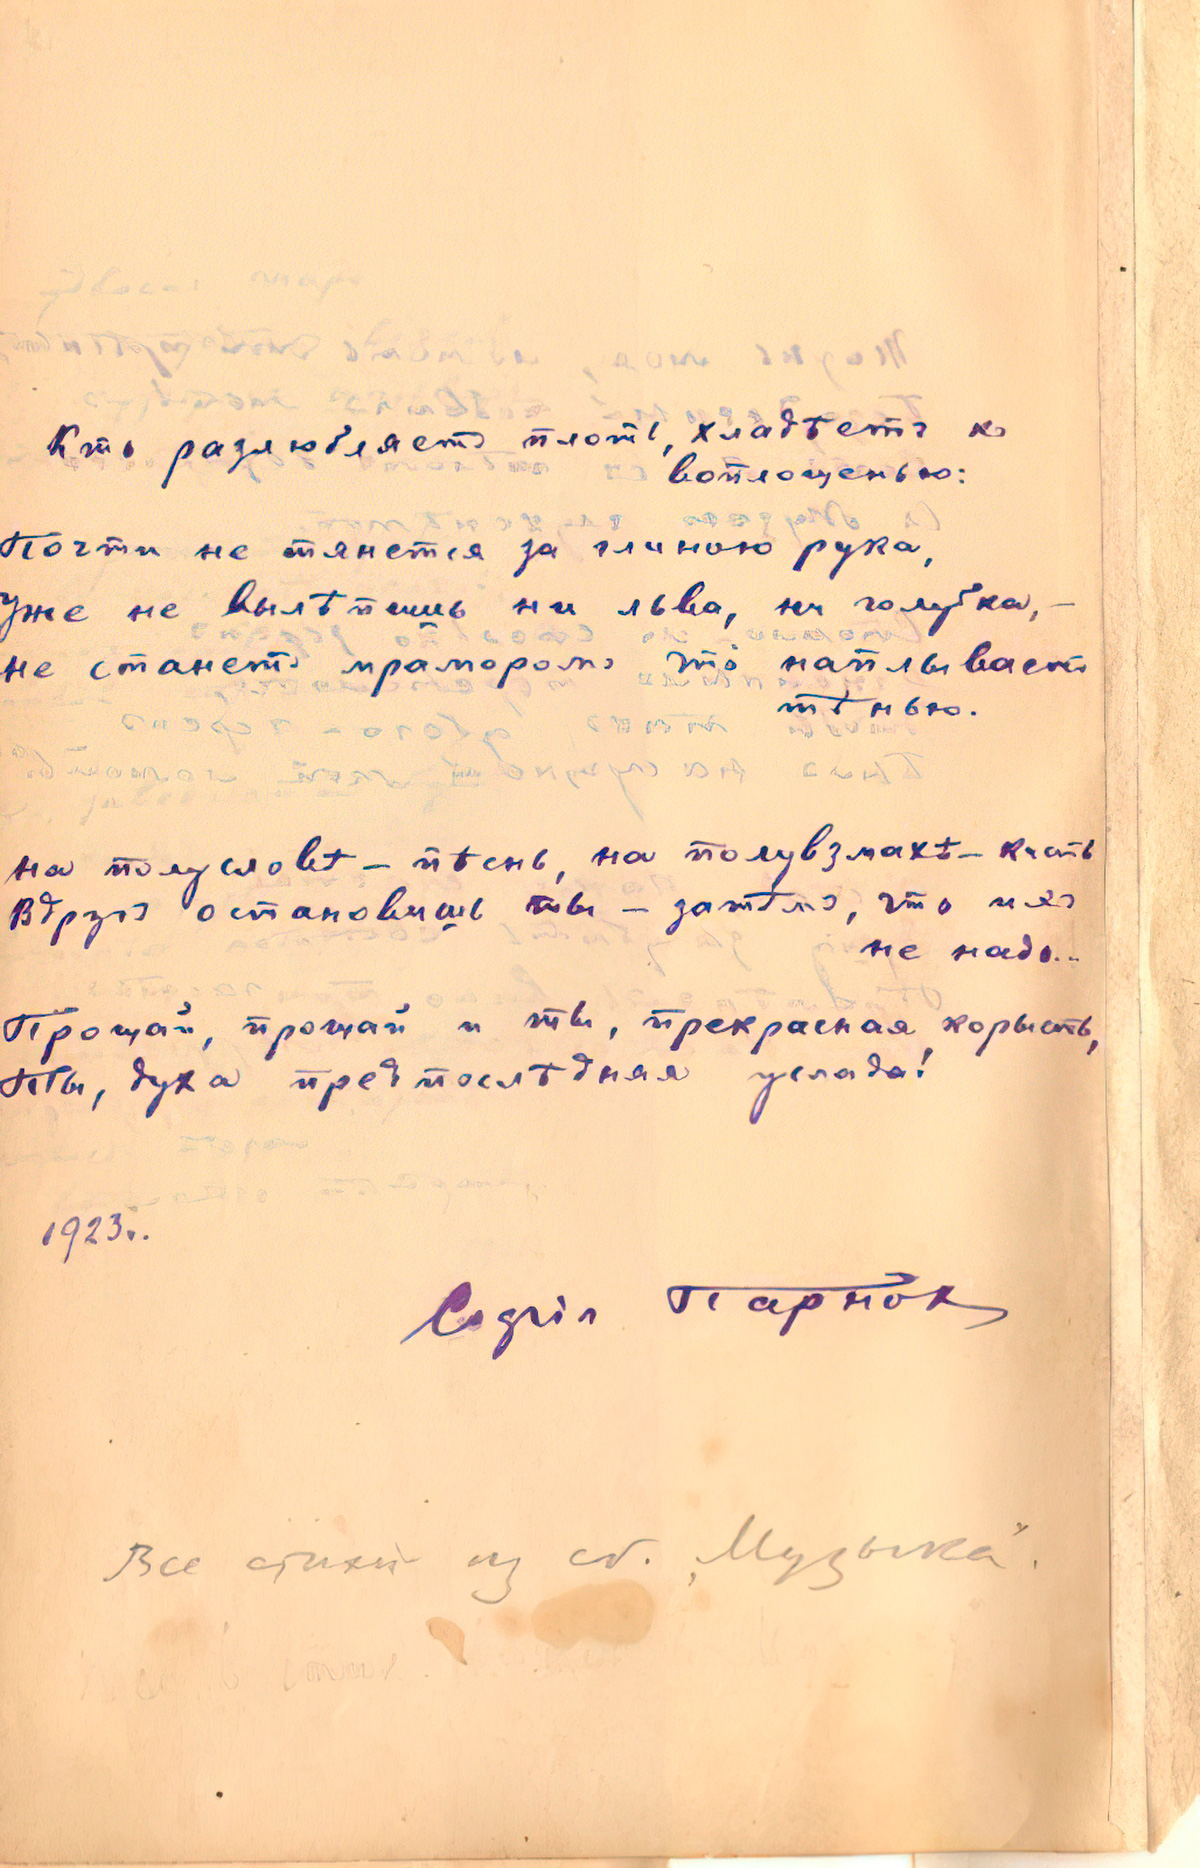 Кто разлюбляетъ плоть, хладѣетъ къ
воплощенью:
Почти не тянется за глиною рука,
Уже не вылѣпишь ни льва, ни голубка, –
не станетъ мраморомъ что наплываетъ
тѣнью.
на полусловѣ – пѣснь, на полувзмахѣ – кисть
Вдругъ остановишь ты – затѣмъ, что ихъ
не надо..
Прощай, прощай и ты, прекрасная корысть,
Ты, духа предпослѣдняя услада!
1923г.
Софія Парнок
Все стихи из сб. „Музыка".